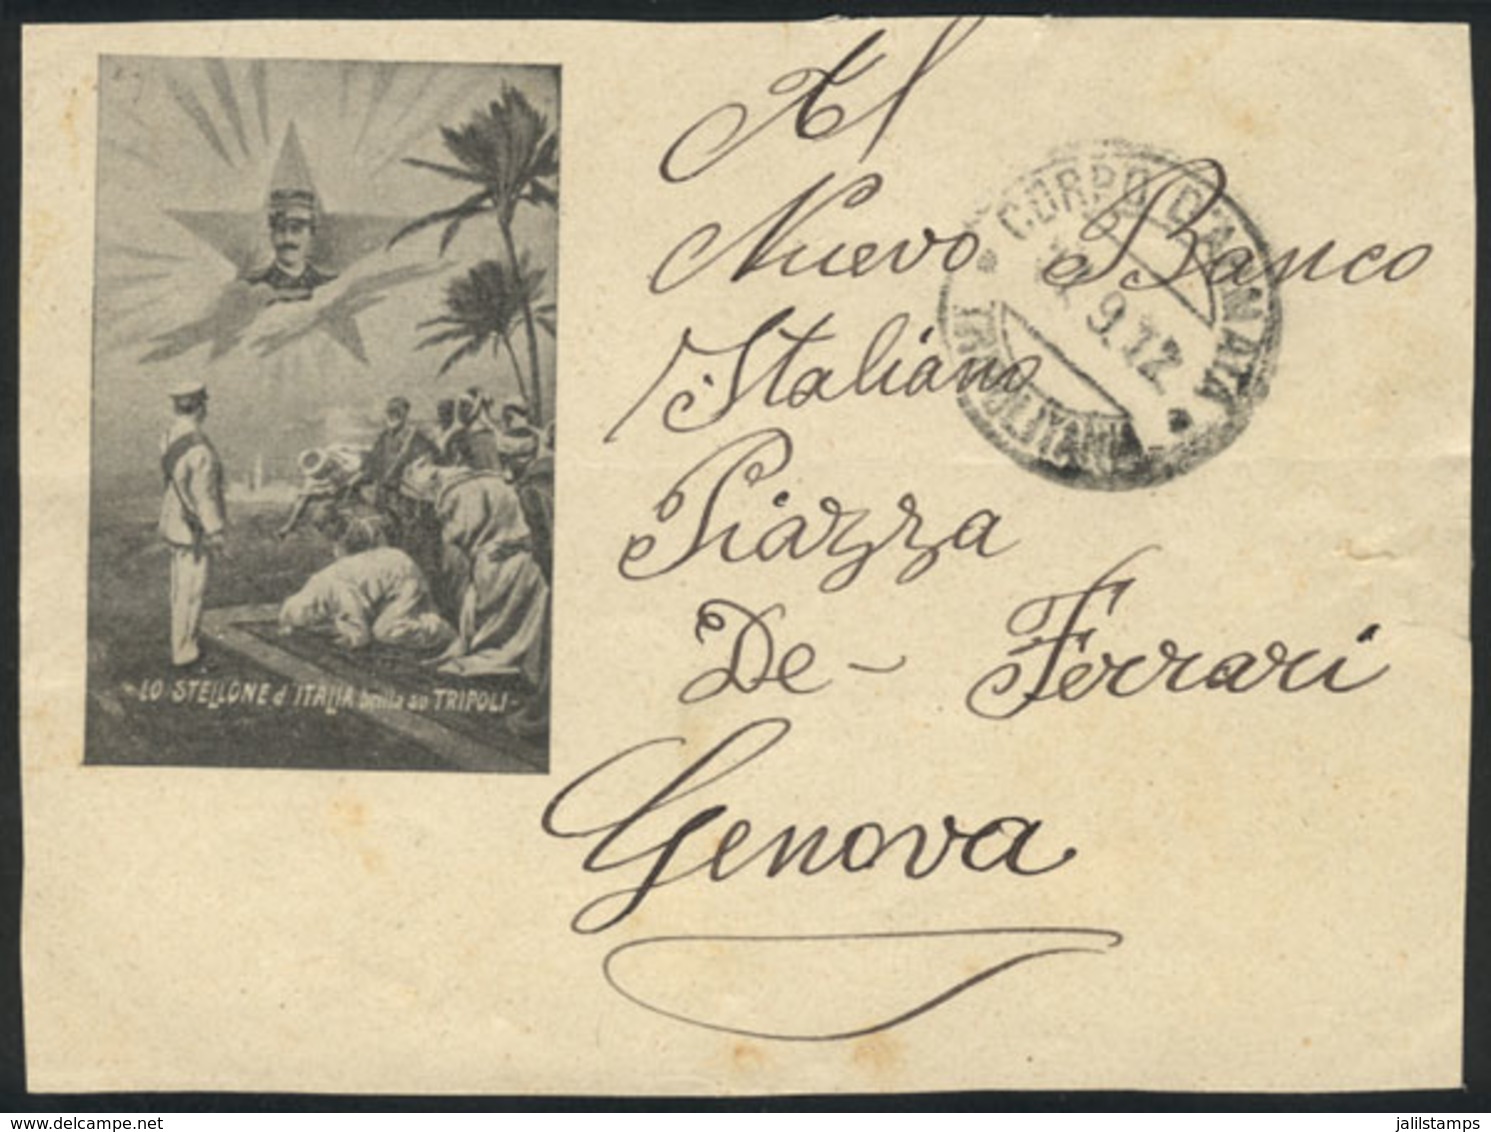 Al
Nuevo Banco
Italiano
Piazza
De - Ferrari
Genova
CORPO D'ARMATA
9.12
TRIPOLITANIA
LO STELLONE d' ITALIA brilla su TRIPOLI
delcampe.net
jalilstamps